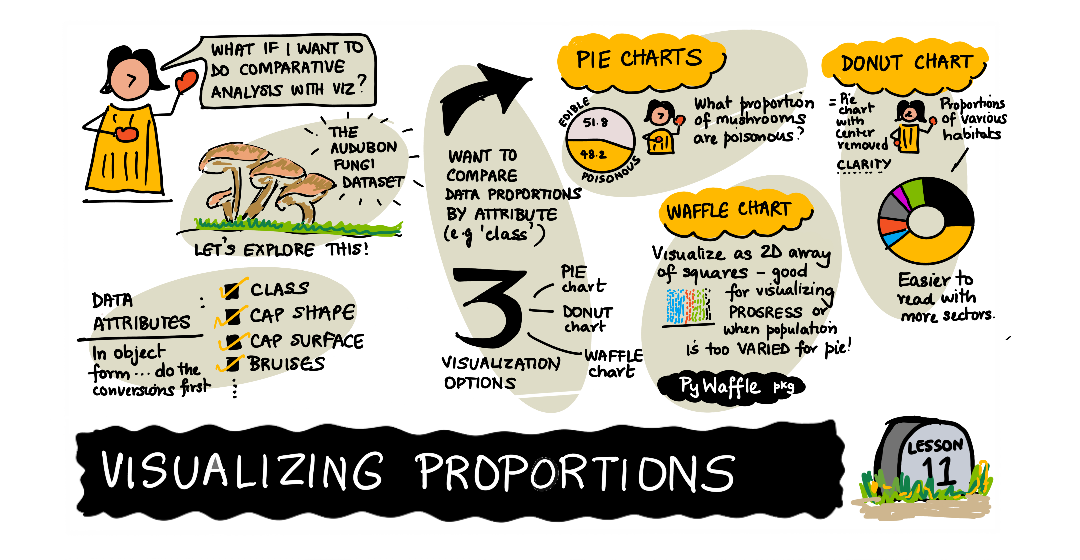 WHAT IF I WANT TO
DO COMPARATIVE
ANALYSIS WITH VIZ?
THE
AUDUBON
FUNGI
DATASET
LET'S EXPLORE THIS!
DATA :
ATTRIBUTES
In object
form... do the
conversions first
CLASS
CAP SHAPE
CAP SURFACE
BRUISES
WANT TO
COMPARE
DATA PROPORTIONS
BY ATTRIBUTE
(e.g 'class')
3
VISUALIZATION
OPTIONS
PIE
chart
DONUT
chart
WAFFLE
chart
PIE CHARTS
EDIBLE
51.8
48.2
POISONOUS
What proportion
of mushrooms
are poisonous?
WAFFLE CHART
Visualize as 2D array
of squares – good
for visualizing
PROGRESS or
when population
is too VARIED for pie!
PyWaffle pkg
DONUT CHART
= Pie
chart
with
center
removed
CLARITY
Proportions
of various
habitats
Easier to
read with
more sectors.
VISUALIZING PROPORTIONS
LESSON
11